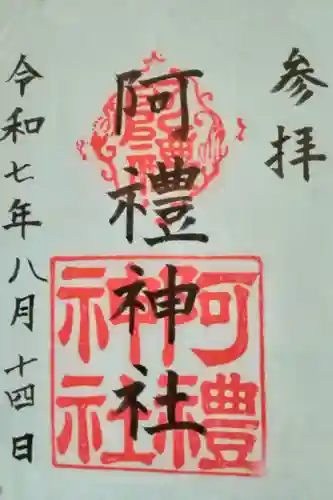 参拝
阿禮神社
令和七年八月十四日
阿禮
神社
神社